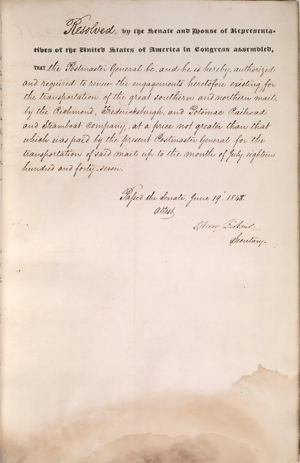 Resolved, by the Senate and House of Representa-
tives of the United States of America in Congress assembled,
THAT the Postmaster General be, and he is hereby, authorized
and required to renew the engagements heretofore existing, for
the transportation of the great southern and northern mail,
by the Richmond, Fredericksburgh, and Potomac Railroad
and Steamboat Company, at a price not greater than that
which was paid by the present Postmaster General for the
transportation of said mail up to the month of July, eighteen
hundred and forty-seven.
Passed the Senate, June 19, 1848
Attest,
Asbury Dickins,
Secretary.